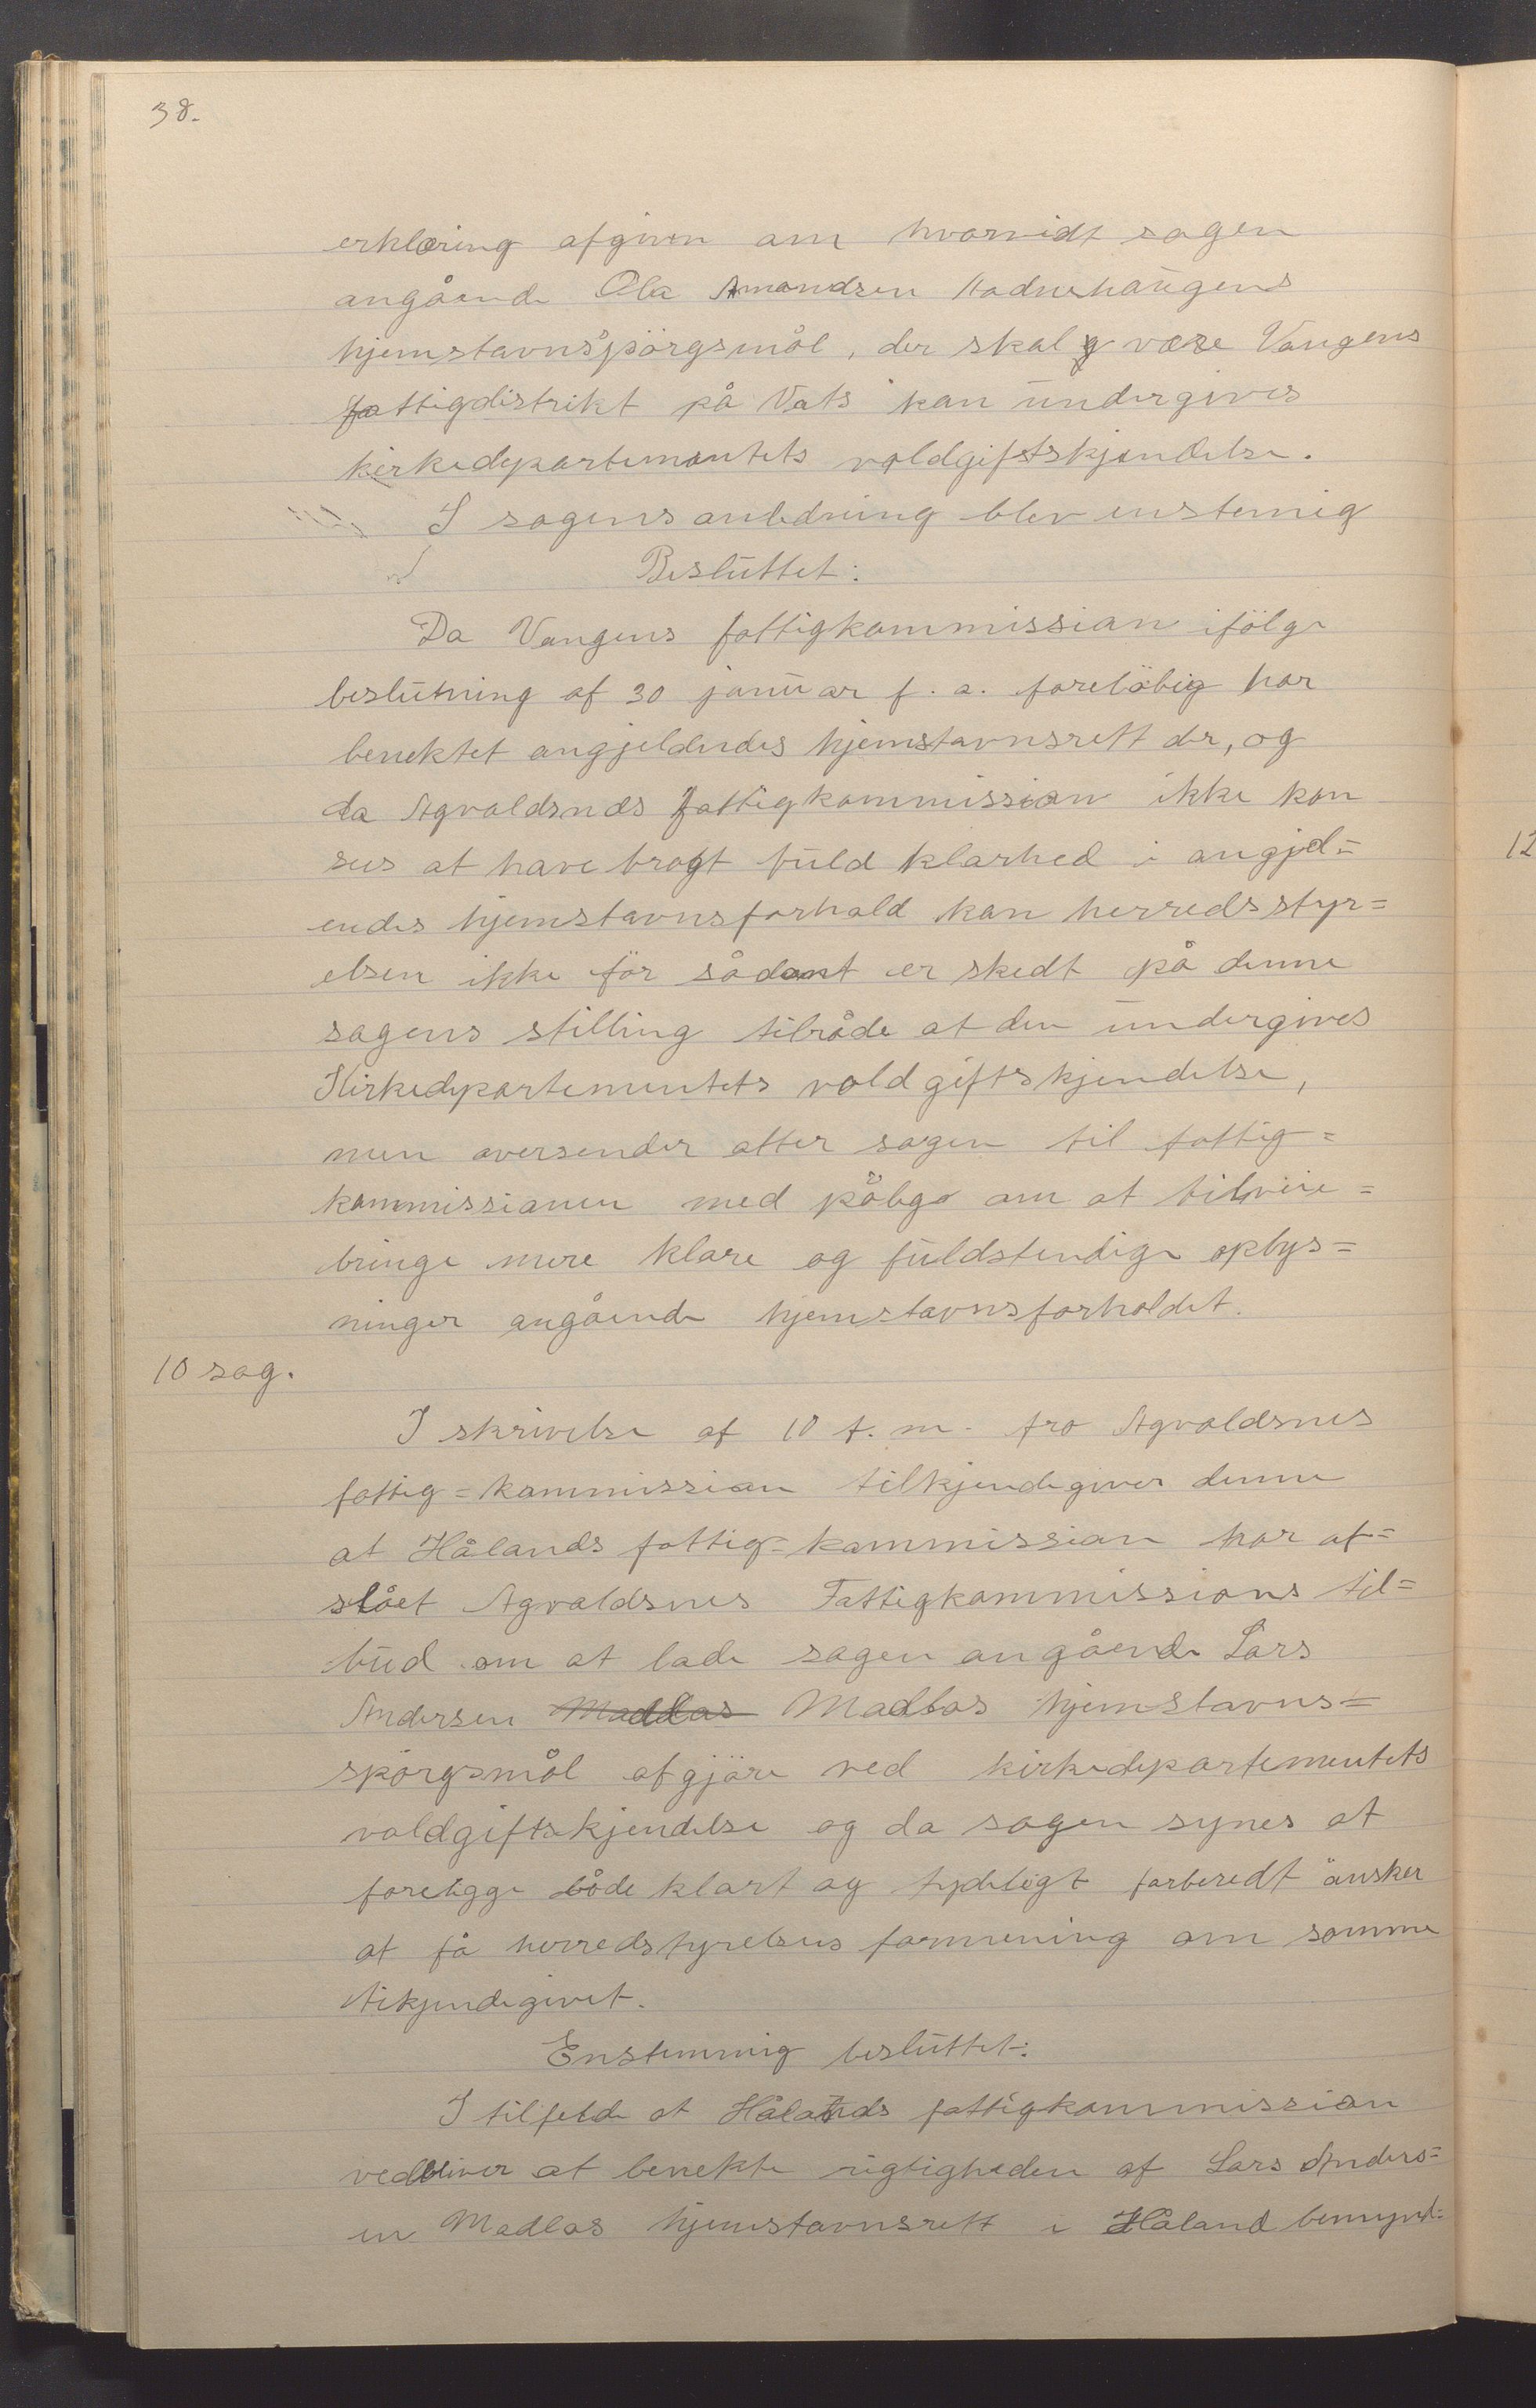 38.
erklæring afgiven om hvorvidt sagen
angående Ola Amandsen Hadnehaugens
hjemstavnspörgsmål, der skal være Vangens
fattigdistrikt på Vats kan undergives
kirkedepartementets voldgiftskjendelse.
I sagens anledning blev enstemig
Besluttet:
Da Vangens fattigkommission ifölge
beslutning af 30 januar f. a. foreløbig har
benektet angjeldendes hjemstavnsrett der, og
da Agvaldsnes fattigkommission ikke kan
sees at have bragt fuld klarhed i angjeld=
endes hjemstavnsforhold kan herredsstyr=
elsen ikke för sådant er skedt på denne
sagens stilling tilråde at den undergives
Kirkedepartementets voldgiftskjendelse,
men oversender atter sagen til fattig=
kommissionen med pålæg om at tilveie=
bringe mere klare og fuldstendige oplys=
ninger angående hjemstavnsforholdet.
10 sag.
I skrivelse af 10 f. m. fra Agvaldsnes
fattig=kommission tilkjendegiver denne
at Hålands fattig=kommission har af=
slået Agvaldsnes Fattigkommissions til=
bud om at lade sagen angående Lars
Andersen Madlas Madlas hjemstavns=
spörgsmål afgjöre ved kirkedepartementets
voldgiftskjendelse og da sagen synes at
foreligge både klart og tydeligt forberedt önsker
at få herredstyrelsens formening om samme
tikjendegivet.
Enstemmig besluttet:
I tilfelde at Hålands fattigkommission
vedbliver at benekte rigtigheden af Lars Anders=
en Madlas hjemstavnsrett i Håland bemynd=
12